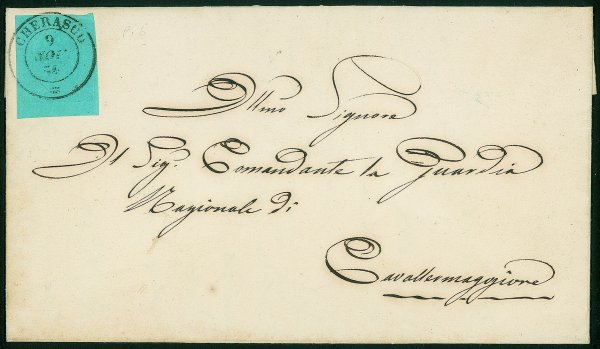 CHERASCO
9
NOV
54
P. 6
Illmo Signore
Il Sig. Comandante la Guardia
Nazionale di
Cavallermaggiore